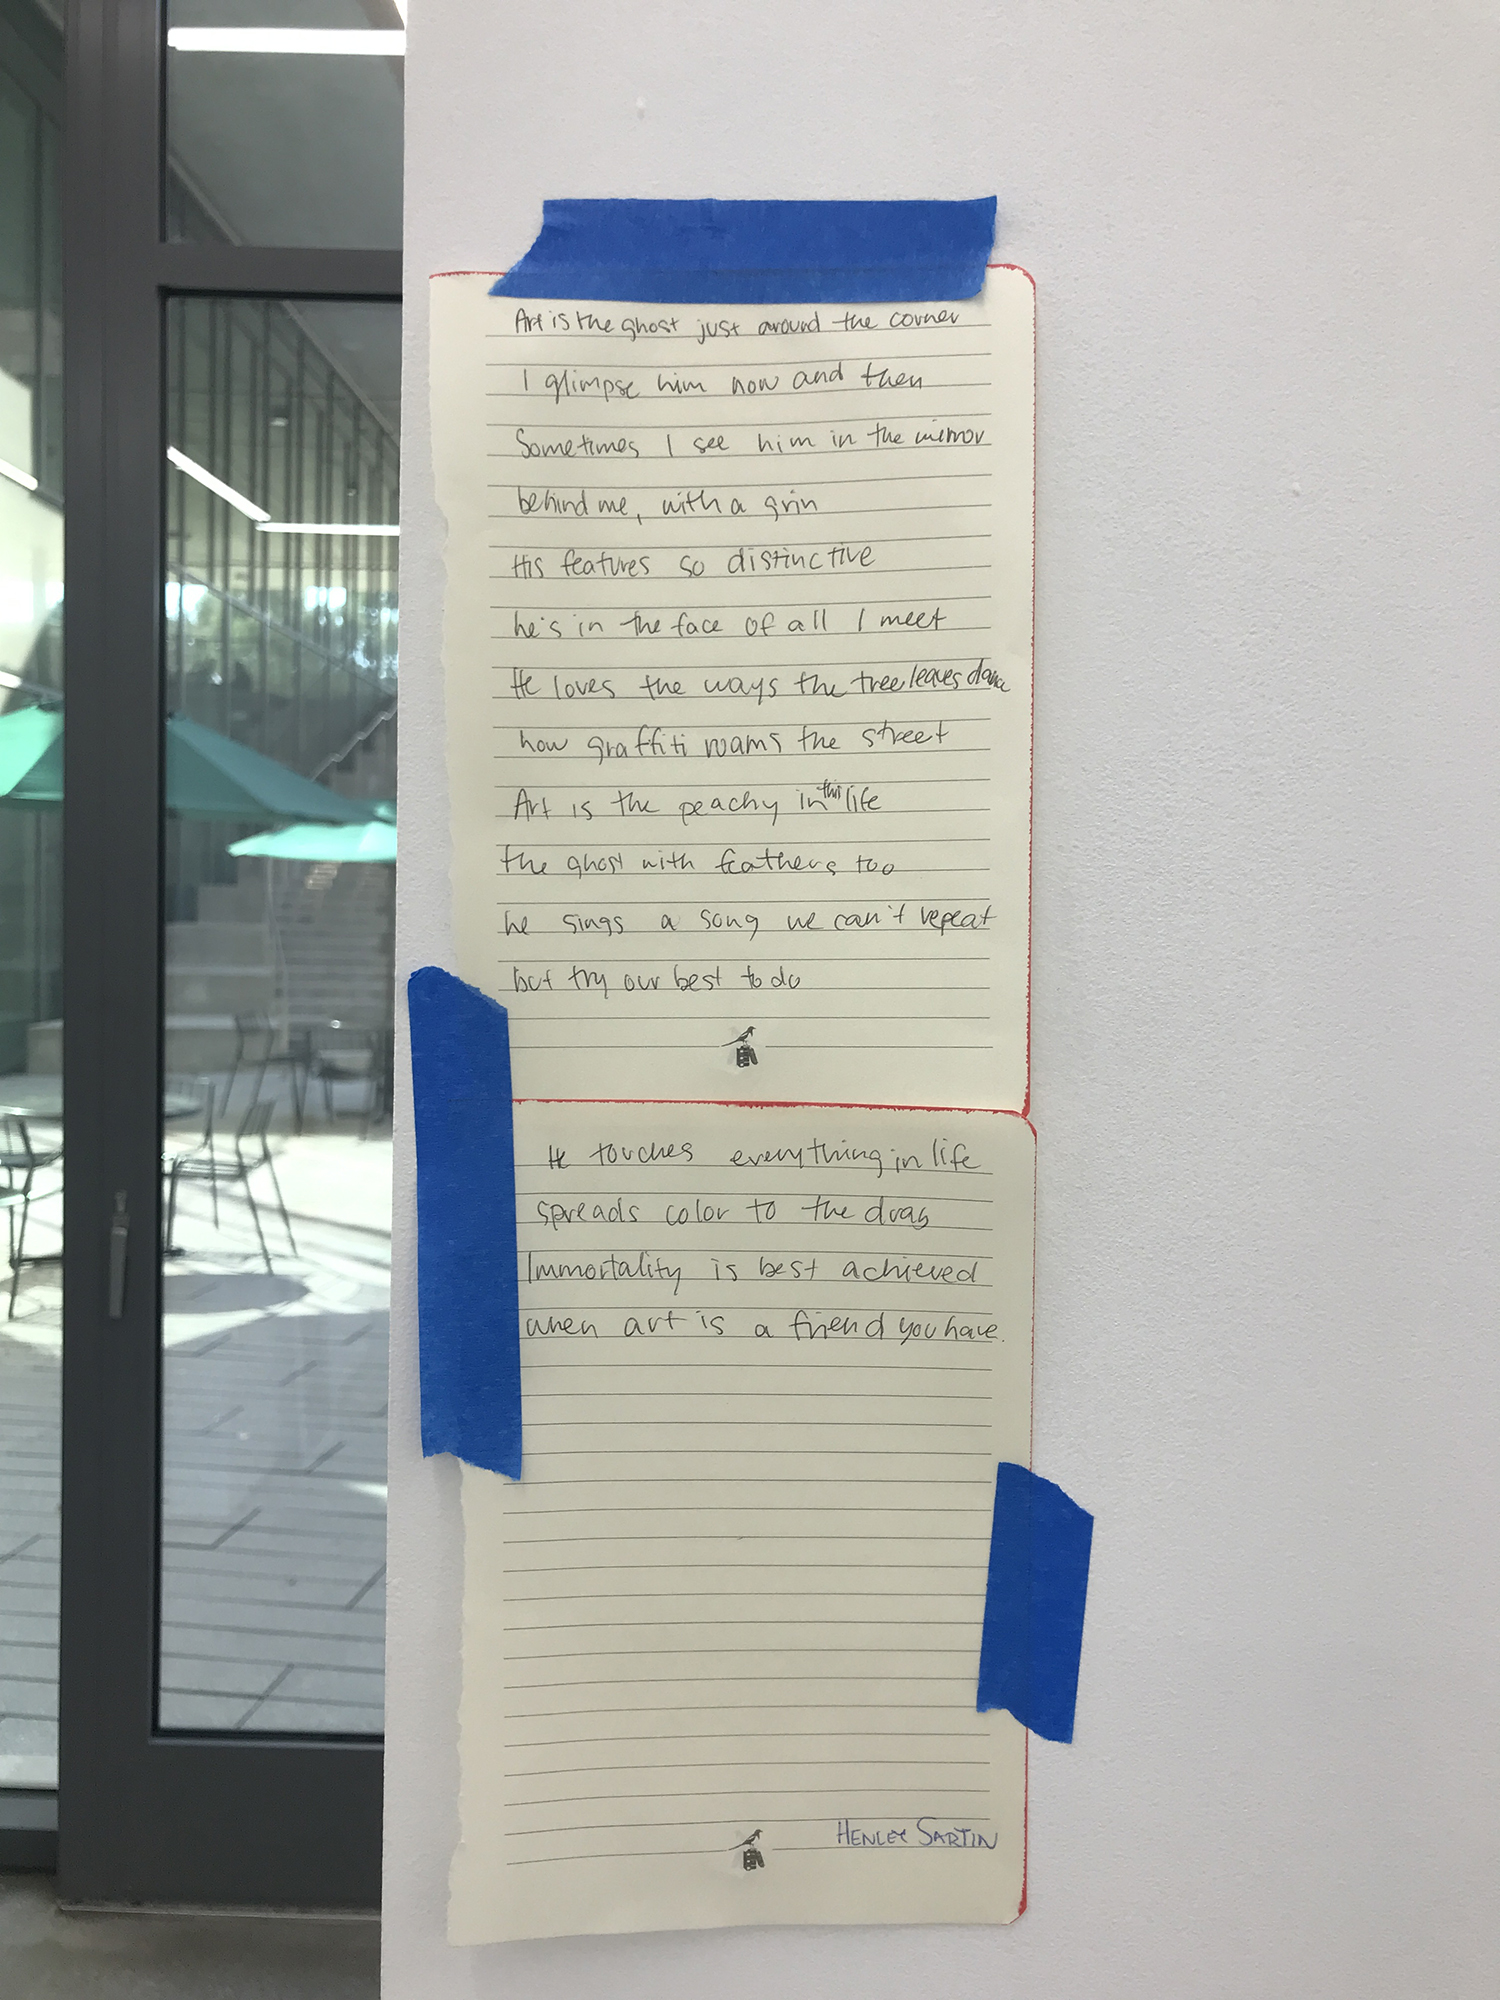 Art is the ghost just around the corner
I glimpse him now and then
Sometimes I see him in the mirror
behind me, with a grin
His features so distinctive
he's in the face of all I meet
He loves the ways the tree leaves dance
how graffiti roams the street
Art is the peachy in this life
the ghost with feathers too
he sings a song we can't repeat
but try our best to do
He touches everything in life
spreads color to the drab
Immortality is best achieved
when art is a friend you have.
HENLEY SARTIN